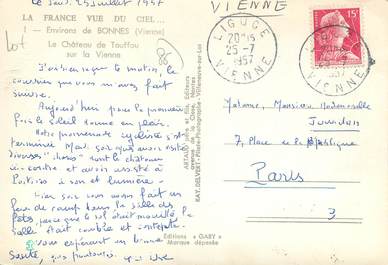 Le Jeudi 25 Juillet 1957
VIENNE
LA FRANCE VUE DU CIEL...
1 - Environs de BONNES (Vienne)
Le Château de Touffou
sur la Vienne
Lot
86
LIGUGE
20 H 15
25-7
1957
VIENNE
15F
1957
VIENNE
J'ai reçu ce matin, le
courrier que vous m'avez
fait suivre.
Aujourd'hui pour la première
fois le soleil donne en plein.
Notre promenade cycliste est
terminée
le château
ci-contre et avons assisté à
Poitiers à son et lumière.
Hier soir nous avons fait un
feu de camp dans la salle des
fêtes parce que le sol était mouillé. La
salle était comble et
vous espérant en bonne
santé,
ARTAUD père et fils, Editeurs
avenue de la Close, Nantes
RAY. DELVERT, Pilote-Photographe - Villeneuve-sur-Lot
Editions « GABY »
Marque déposée
Madame, Monsieur Mademoiselle
Jourdan
7, Place de la République
Paris
3